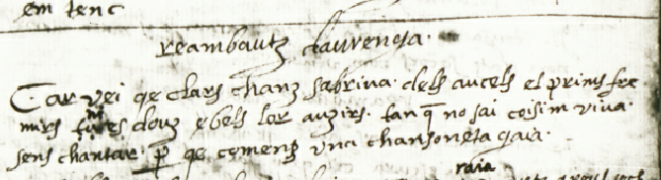 em tenc
reambautz daurenga.
Car vei qe clars chanz sabriva. dels aucels el prims fre
mirs es douz e bels lor auzirs. tan q̄ no sai cosim viva.
sens chantar. ꝑ qe comenz una chansoneta gaia.
raia